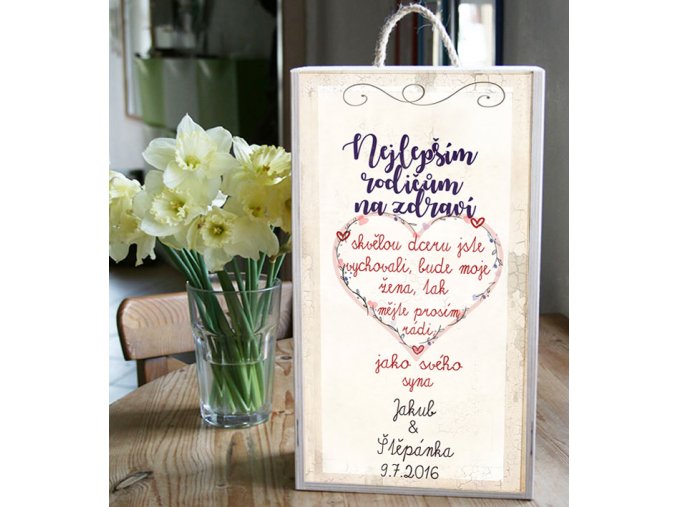 Nejlepším
rodičům
na zdraví
skvělou dceru jste
vychovali, bude moje
žena, tak
mějte prosím
rádi,
jako svého
syna
Jakub
&
Štěpánka
9.7.2016